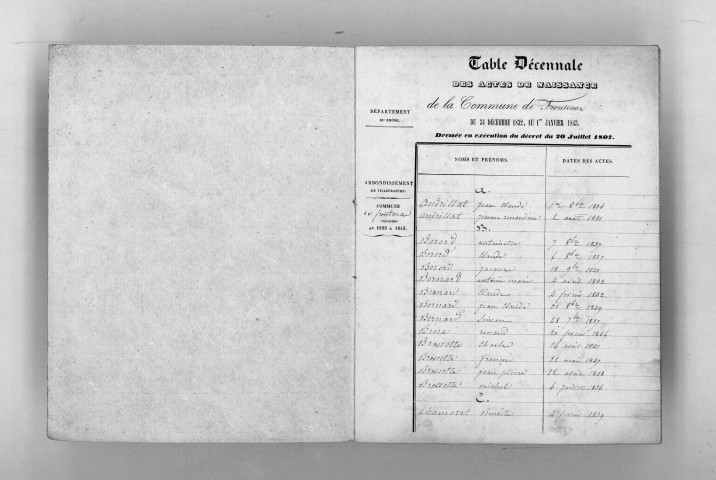 Table Décennale
DES ACTES DE NAISSANCE
de la Commune de Frontenas
DU 31 DÉCEMBRE 1832, AU 1er JANVIER 1843.
Dressée en exécution du décret du 20 Juillet 1807.
DÉPARTEMENT
DU RHÔNE.
ARRONDISSEMENT
DE VILLEFRANCHE.
COMMUNE
de frontenas
DE 1833 A 1843.
NOMS ET PRÉNOMS.
DATES DES ACTES.
A.
Andrillat jean Claude 1er 8bre 1836
Andrillat jeanne 2 août 1841
B.
Berord antoinette 7 8bre 1837
Berord Claude 6 8bre 1837
Berord jacques 18 9bre 1841
Bernard antoine marie 4 avril 1842
Bernard Claude 4 février 1842
Bernard jean Claude 31 8bre 1839
Bernard Simon 28 7bre
renard 20 février 1836
Brossette Charles 16 août 1841
Brossette françois 21 mai 1841
Brossette jean pierre 22 avril 1838
Brossette michel 6 janvier 1836
C.
Chamoret Benoite février 1839